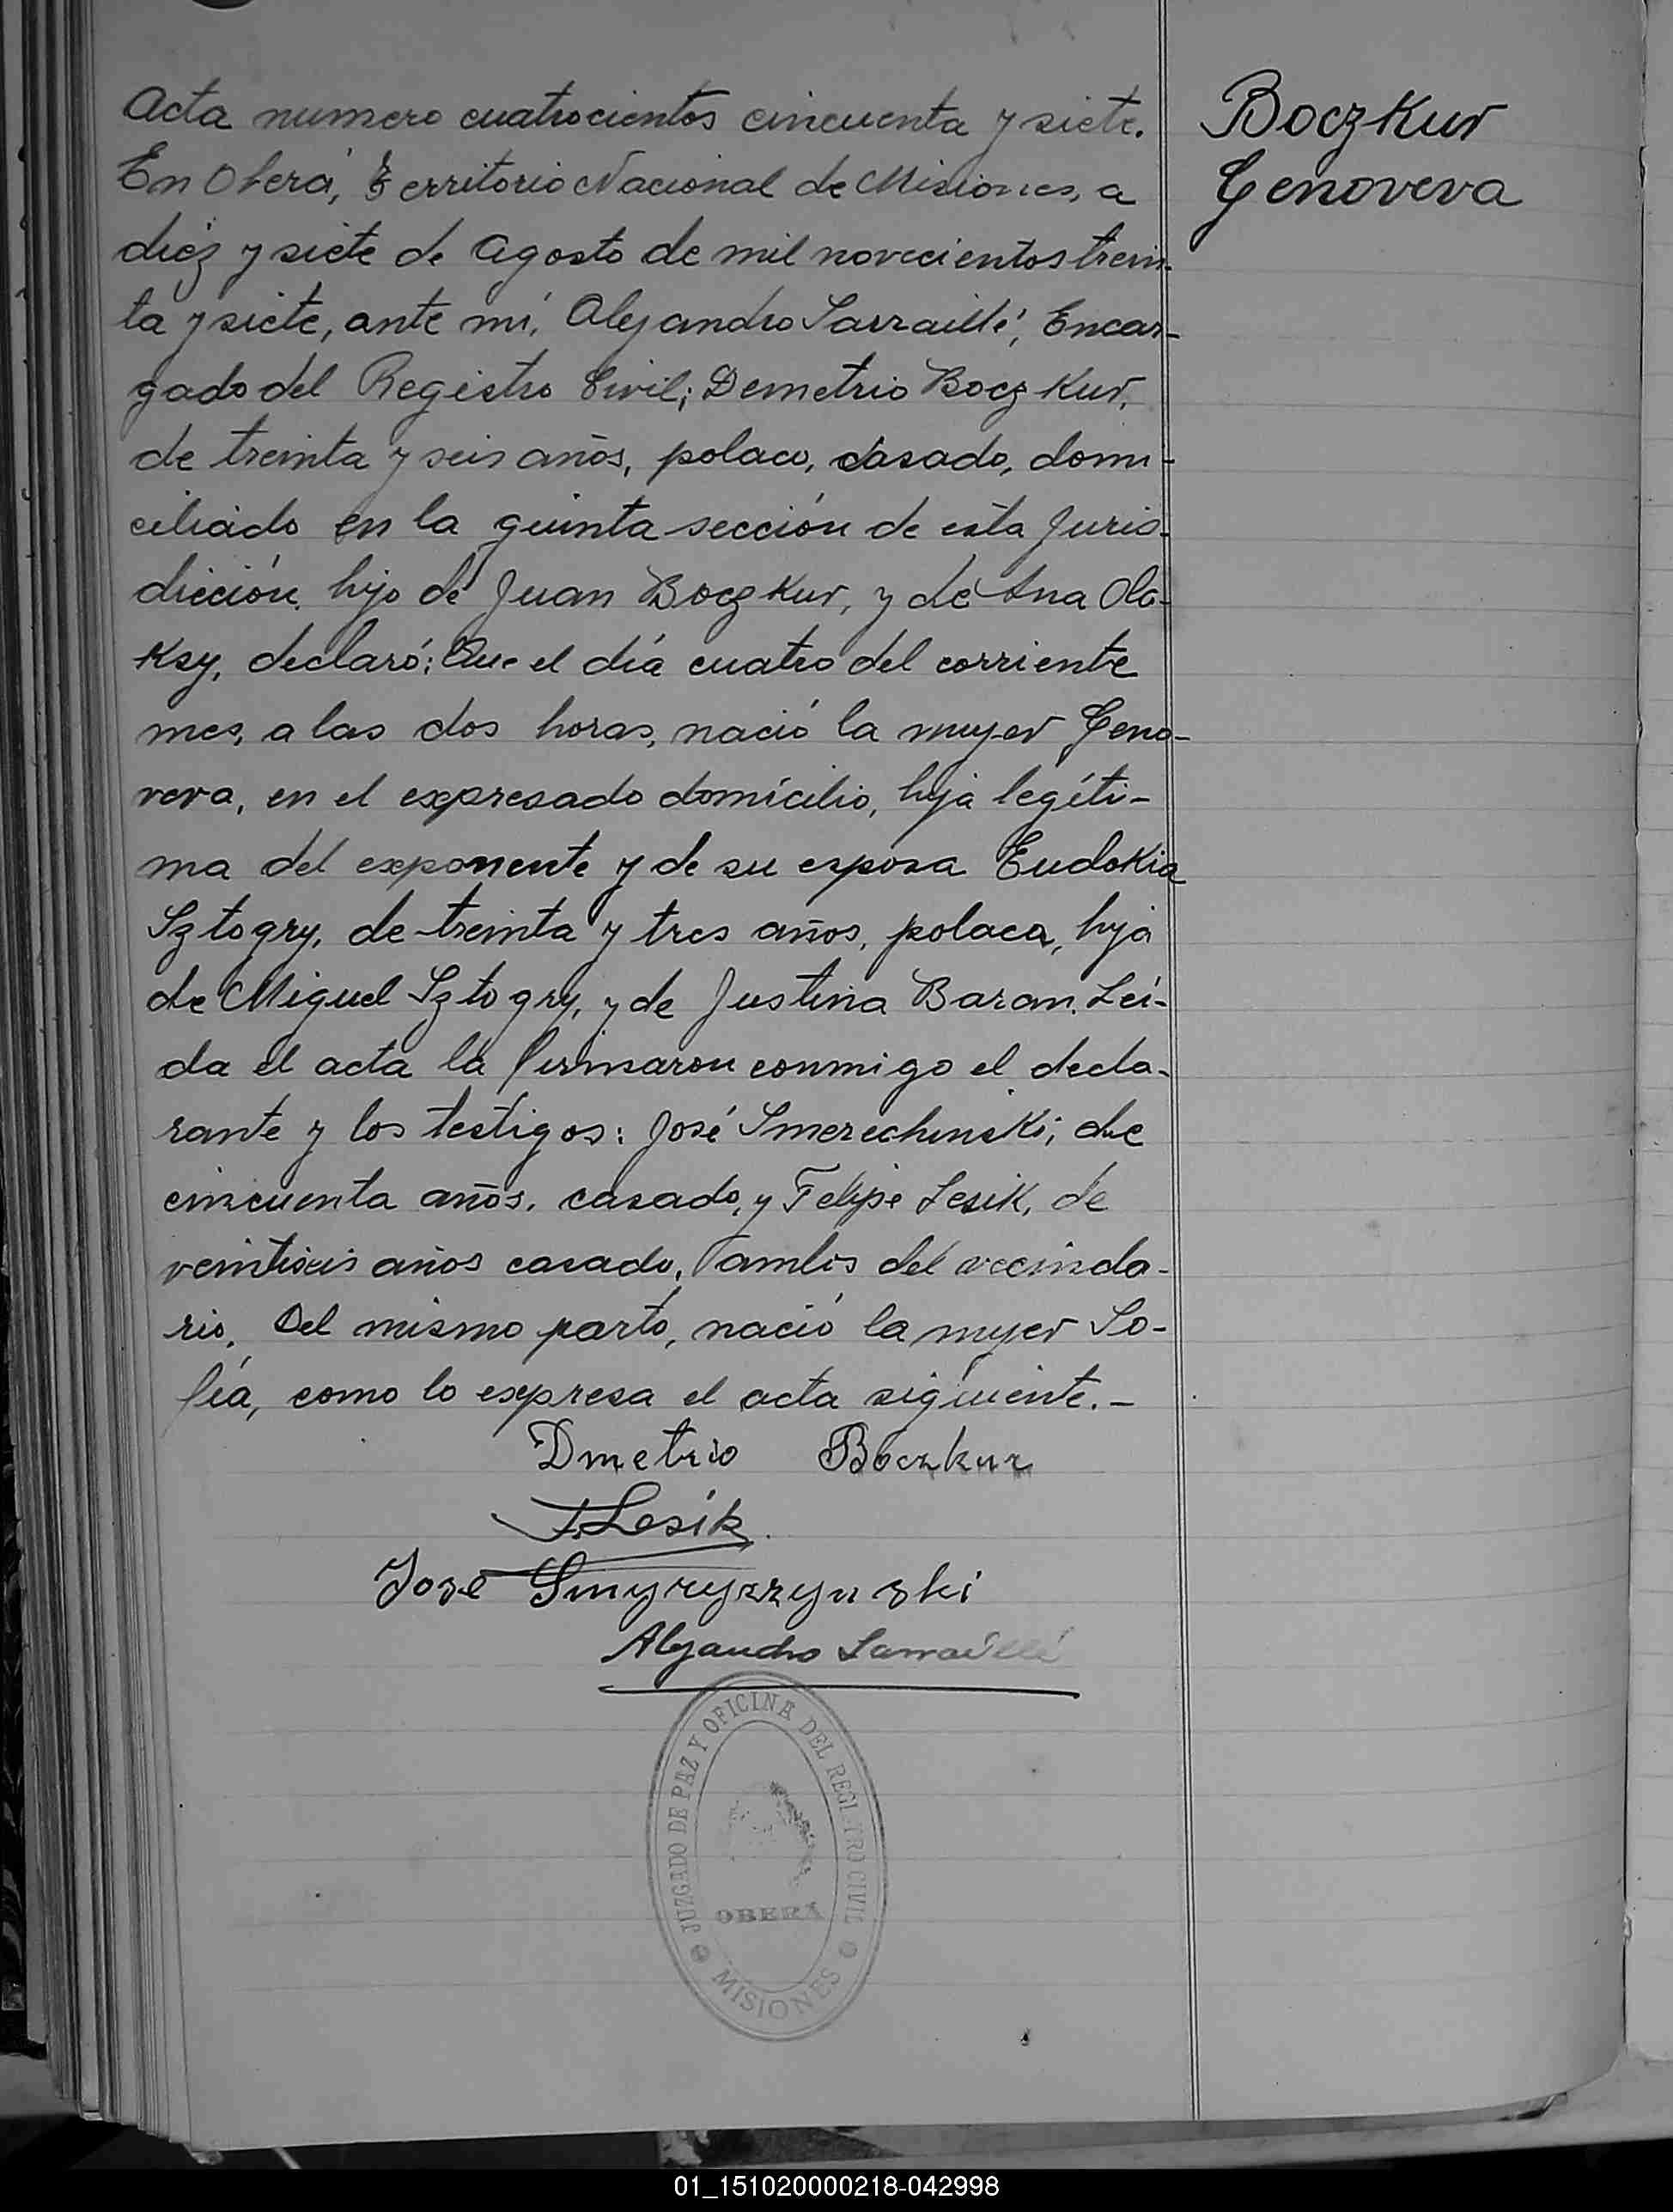 Acta numero cuatrocientos cincuenta y siete.
En Oberá, Territorio Nacional de Misiones, a
diéz y siete de Agosto de mil novecientos trein-
ta y siete, ante mí, Alejandro Sarraillé, Encar-
gado del Registro Civil; Demetrio BoczKur,
de treinta y seis años, polaco, casado, domi-
ciliado en la quinta sección de esta Juris-
dicción, hijo de Juan BoczKur, y de Ana Ola-
Ksy, declaró: Que el día cuatro del corriente
mes, a las dos horas, nació la mujer Geno-
veva, en el expresado domicilio, hija legíti-
ma del exponente y de su esposa EudoKia
Sztogry, de treinta y tres años, polaca, hija
de Miguel Sztogry, y de Justina Baran. Leí-
da el acta la firmaron conmigo el decla-
rante y los testigos: José SmerechinsKi, de
cincuenta años, casado, y Felipe LesiK, de
veintiseis años casado, ambos del vecinda-
rio. Del mismo parto, nació la mujer So-
fía, como lo expresa el acta siguiente.-
Dmetrio Boczkur
F. Lesik
José Smyryzzynski
Alejandro Sarraillé
BoczKur
Genoveva
JUZGADO DE PAZ Y OFICINA DEL REGISTRO CIVIL
OBERÁ
MISIONES
01_151020000218-042998